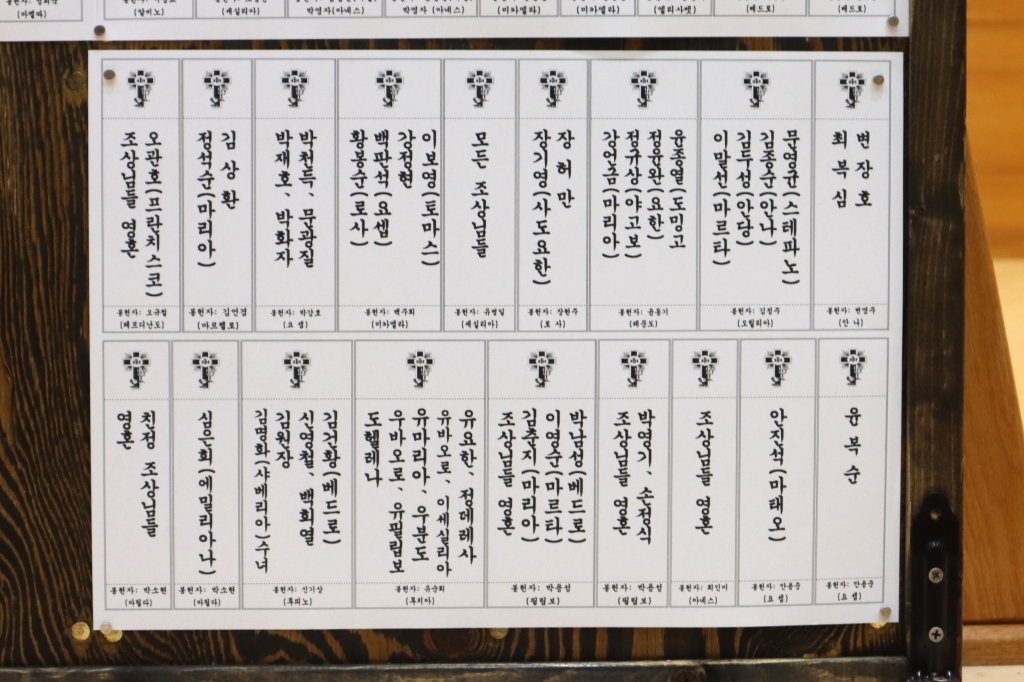 (알비노)
(세실리아)
박영자 (아네스)
박영자 (아네스)
(미카엘라)
(미카엘라)
(엘리사벳)
(베드로)
(베드로)
변장호
최복심
봉헌자: 변영주
(안 나)
문영균(스테파노)
김종순(안나)
김두성(안당)
이말선(마르타)
봉헌자: 김정주
(오틸리아)
윤종열(도밍고)
정규완(요한)
정규상(야고보)
강언금(마리아)
봉헌자: 윤봉기
(태문도)
장허만
장기영(사도요한)
봉헌자: 장현주
(로 사)
모든 조상님들
봉헌자: 유병일
(세실리아)
이보영(토마스)
강정현
백판석(요셉)
황봉순(로사)
봉헌자: 백주희
(미카엘라)
박천득、문광질
박재호、박화자
봉헌자: 박강호
(요 셉)
김상환
정석순(마리아)
봉헌자: 김연겸
(마르첼로)
오관호(프란치스코)
조상님들 영혼
봉헌자: 오규철
(페르디난도)
윤복순
봉헌자: 안용준
(요 셉)
안지석(마태오)
봉헌자: 안용준
(요 셉)
조상님들 영혼
봉헌자: 최인비
(아네스)
박영기、손정식
조상님들 영혼
봉헌자: 박용섭
(필립보)
박남성(베드로)
이영순(마르타)
김춘지(마리아)
조상님들 영혼
봉헌자: 박용섭
(필립보)
유요한、정데레사
유바오로、이세실리아
유마리아、우분도
우바오로、유필립보
도헬레나
봉헌자: 유순희
(루치아)
김건황(베드로)
신영철、백희열
김원장
김명화(샤베리아)수녀
봉헌자: 신기상
(루피노)
심은희(에밀리아나)
봉헌자: 박소현
(마틸다)
친정 조상님들
영혼
봉헌자: 박소현
(마틸다)